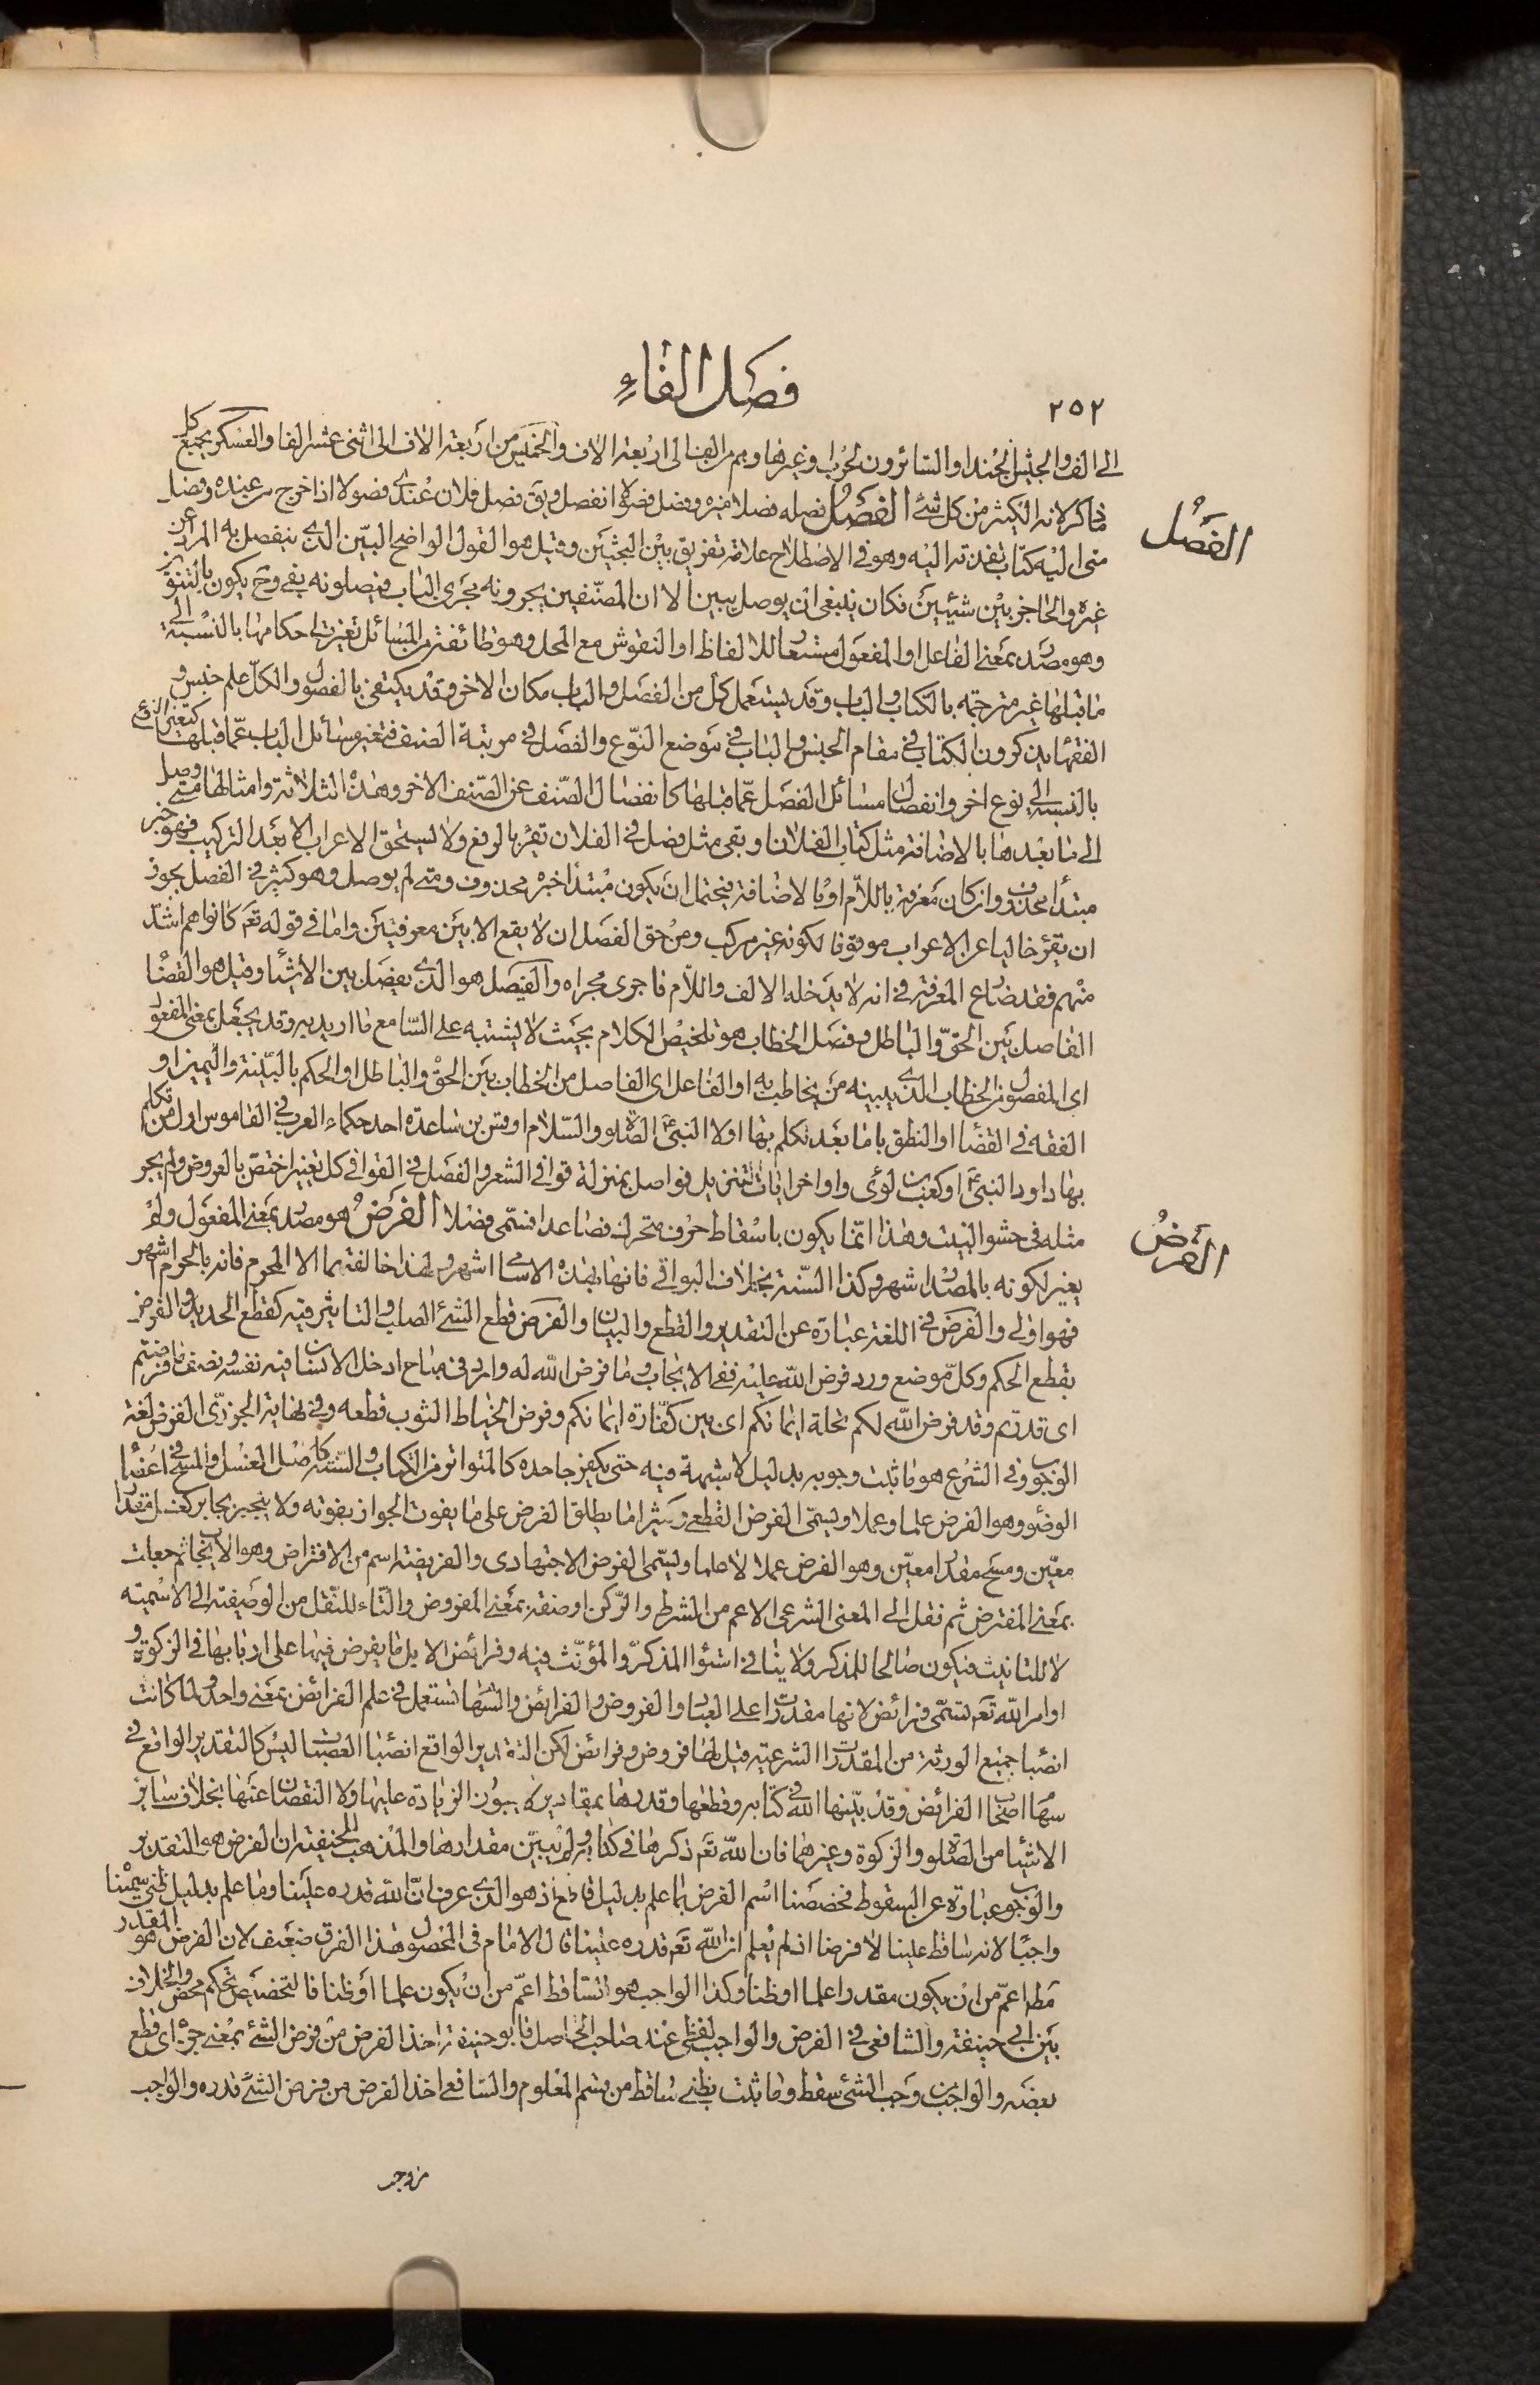 ٢٥٢
فصل الفاء
الى الف والجيش الجند او السائرون لحرب او غيرها وهم من الف الى اربعة الاف والخميس من اربعة الاف الى اثنى عشر الفا والعسكر يجمع كل
ما ذكر لانه الكثير من كل شئ الفصل فصله فصلا ميزه وفصل فصولا انفصل ويق فصل فلان عندى فصولا اذا خرج من عنده وفصل
الفصل
منى اليه كتاب نفدته اليه وهو فى الاصطلاح علامة تفريق بين البحثين وقيل هو القول الواضح البين الذى ينفصل به المراد عن
غيره والحاجز بين شيئين فكان ينبغى ان يوصل ببين الا ان المصنفين يجرونه مجرى الباب فيصلونه بفى وح يكون بالتنوين
وهو مصدر بمعنى الفاعل او المفعول مستعار للالفاظ او النقوش مع المحل وهو طائفة من المسائل تغيرت احكامها بالنسبة الى
ما قبلها غير مترجمة بالكتاب والباب وقد يستعمل كل من الفصل والباب مكان الاخر وقد يكتفى بالفصول والكل علم جنس و
الفقهاء يذكرون الكتاب فى مقام الجنس والباب فى موضع النوع والفصل فى مرتبة الصنف فتغير مسائل الباب عما قبلها كتغير النوع
بالنسبة الى نوع اخر وانفصال مسائل الفصل عما قبلها كانفصال الصنف عن الصنف الاخر وهذه الثلاثة وامثالها متى وصل
الى ما بعدها بالاضافة مثل كتاب الفلان او بفى مثل فصل فى الفلان تقرأ بالرفع ولا يستحق الاعراب الا بعد التركيب فهو خبر
مبتدأ محذوف وان كان معرفة باللام او بالاضافة فيحتمل ان يكون مبتدأ خبره محذوف ومتى لم يوصل وهو كثير فى الفصل يجوز
ان تقرء خاليا عن الاعراب موقوفا لكونه غير مركب ومن حق الفصل ان لا يقع الا بين معرفتين واما فى قوله تع كانوا هم اشد
منهم فقد ضارع المعرفة فى انه لا يدخله الالف واللام فاجرى مجراه والفيصل هو الذى يفصل بين الاشياء وقيل هو القضاء
الفاصل بين الحق والباطل وفصل الخطاب هو تلخيص الكلام بحيث لا يشتبه على السامع ما اريد به وقد يجعل بمعنى المفعول
اى المفصول من الخطاب الذى يبينه من يخاطب به او الفاعل اى الفاصل من الخطاب بين الحق والباطل او الحكم بالبينة واليمين او
الفقه فى القضاء او النطق باما بعد تكلم بها اولا النبى ع الصلوة والسلام او قس بن ساعدة احد حكماء العرب فى القاموس اول من تكلم
بها داود النبى ع او كعب بن لوى واواخر ايات التنزيل فواصل بمنزلة قوافى الشعر والفصل فى القوافى كل تغيير اختص بالعروض ولم يجز
مثله فى حشو البيت وهذا انما يكون باسقاط حرف متحرك فصاعدا فسمى فصلا الفرض هو مصدر بمعنى المفعول ولم
الفرض
يغير لكونه بالمصدر اشهر وكذا السنة بخلاف البواقى فانها بهذه الاسامى اشهر ولهذا خالفتهما الا المحرم فانه بالحرام اشهر
فهو اولى والفرض فى اللغة عبارة عن التقدير والقطع والبيان والفرض قطع الشئ الصلب والتاثير فيه كقطع الحديد والفرض
بقطع الحكم وكل موضع ورد فرض الله عليه ففى الايجاب وما فرض الله له وارد فى مباح ادخل الانسان فيه نفسه ونصف ما فرضتم
اى قدرتم وقد فرض الله لكم تحلة ايمانكم اى بين كفارة ايمانكم وفرض الخياط الثوب قطعه وفى نهاية الجزرى الفرض لغة
الوجوب وفى الشرع هو ما ثبت وجوبه بدليل لا شبهة فيه حتى يكفر جاحده كالمتواتر من الكتاب والسنة كاصل الغسل والمسح فى اعضاء
الوضوء وهو الفرض علما وعملا ويسمى الفرض القطعى وكثيرا ما يطلق الفرض على ما يفوت الجواز بفوته ولا ينجبر بجابر كغسل مقدار
معين ومسح مقدار معين وهو الفرض عملا لا علما ويسمى الفرض الاجتهادى والفريضة اسم من الافتراض وهو الايجاب ثم جعلت
بمعنى المفترض ثم نقل الى المعنى الشرعى الاعم من الشرط والركن او صفة بمعنى المفروض والتاء للنقل من الوصفية الى الاسمية
لا للتانيث فيكون صالحا للمذكر ولا ينافى استواء المذكر والمؤنث فيه وفرائض الابل ما يفرض فيها على اربابها فى الزكوة و
اوامر الله تع تسمى فرائض لانها مقدرات على العباد والفروض والفرائض والسهام تستعمل فى علم الفرائض بمعنى واحد ولما كانت
انصبا جميع الورثة من المقدرات الشرعية قيل لها فروض وفرائض لكن التقدير الواقع انصباء العصبات ليس كالتقدير الواقع فى
سهام اصحاب الفرائض وقد بينها الله فى كتابه وقطعها وقدرها بمقادير لا يجوز الزيادة عليها ولا النقصان عنها بخلاف سائر
الاشياء من الصلوة والزكوة وغيرهما فان الله تع ذكرها فى كتابه ولم يبين مقدارها والمذهب للحنيفية ان الفرض هو التقدير
والوجوب عبارة عن السقوط فخصصنا اسم الفرض بما علم بدليل قاطع اذ هو الذى عرف ان الله قدره علينا وما علم بدليل ظنى سميناه
واجبا لانه ساقط علينا لا فرضا اذ لم يعلم ان الله تع قدره علينا قال الامام فى المحصول هذا الفرق ضعيف لان الفرض هو المقدر
مط اعم من ان يكون مقدرا علما او ظنا وكذا الواجب هو الساقط اعم من ان يكون علما او ظنا فالتخصيص تحكم محض والخلاف
بين ابى حنيفة والشافعى فى الفرض والواجب لفظى عند صاحب الحاصل فابو حنيفة اخذ الفرض من فرض الشئ بمعنى حزه اى قطع
بعضه والواجب من وجب الشئ سقط وما ثبت بظنى ساقط من قسم المعلوم والشافعى اخذ الفرض من فرض الشئ قدره والواجب
من وجب